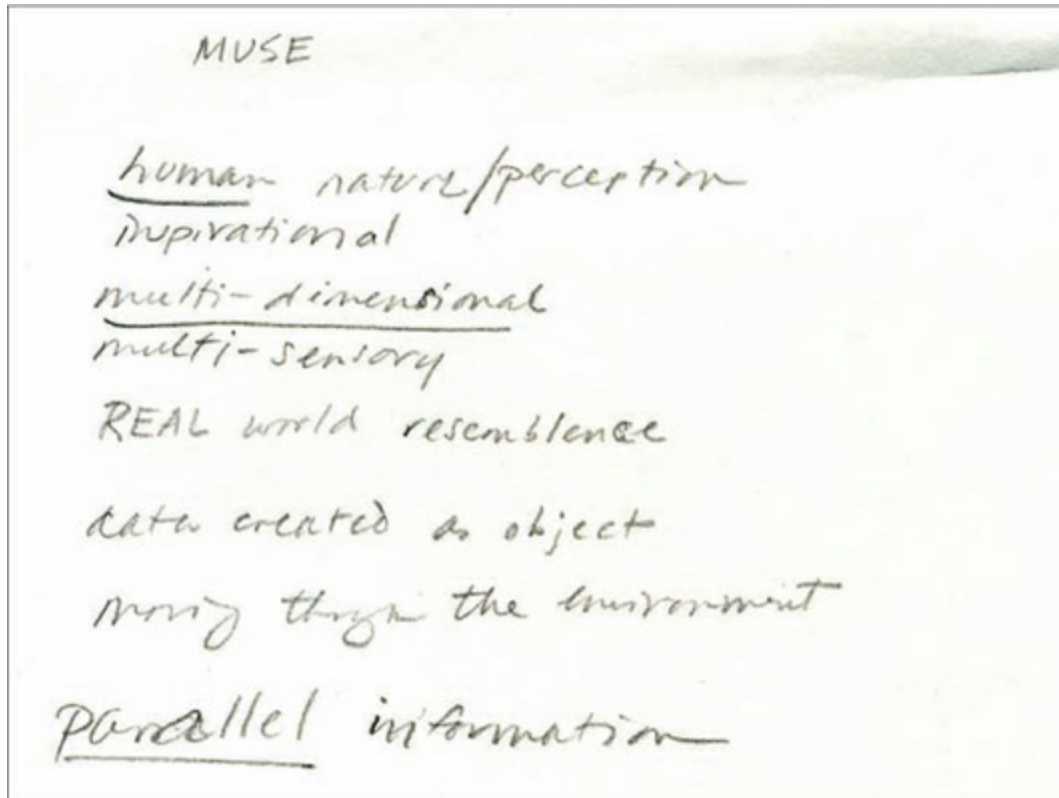 MUSE
human nature/perception
inspirational
multi-dimensional
multi-sensory
REAL world resemblence
data created as object
moving through the environment
parallel information